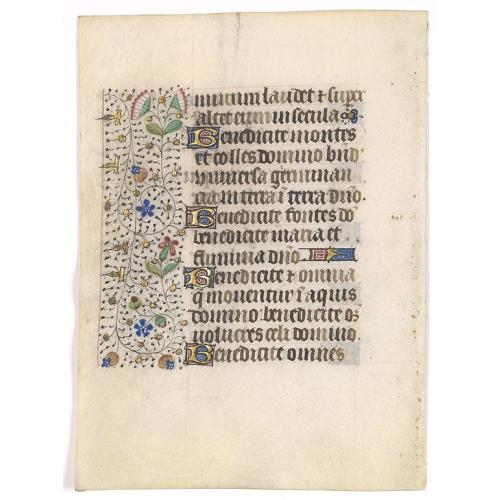 mnium laudet et super
altet eum in secula
Benedicite montes
et colles domino bnd
universa germinan
cia in terra i terra dno.
Benedicite fontes do
benedicite maria et
flumina dno
Benedicite & omnia
q moventur i aquis
domino benedicite oz
volucres celi domino.
Benedicite omnes